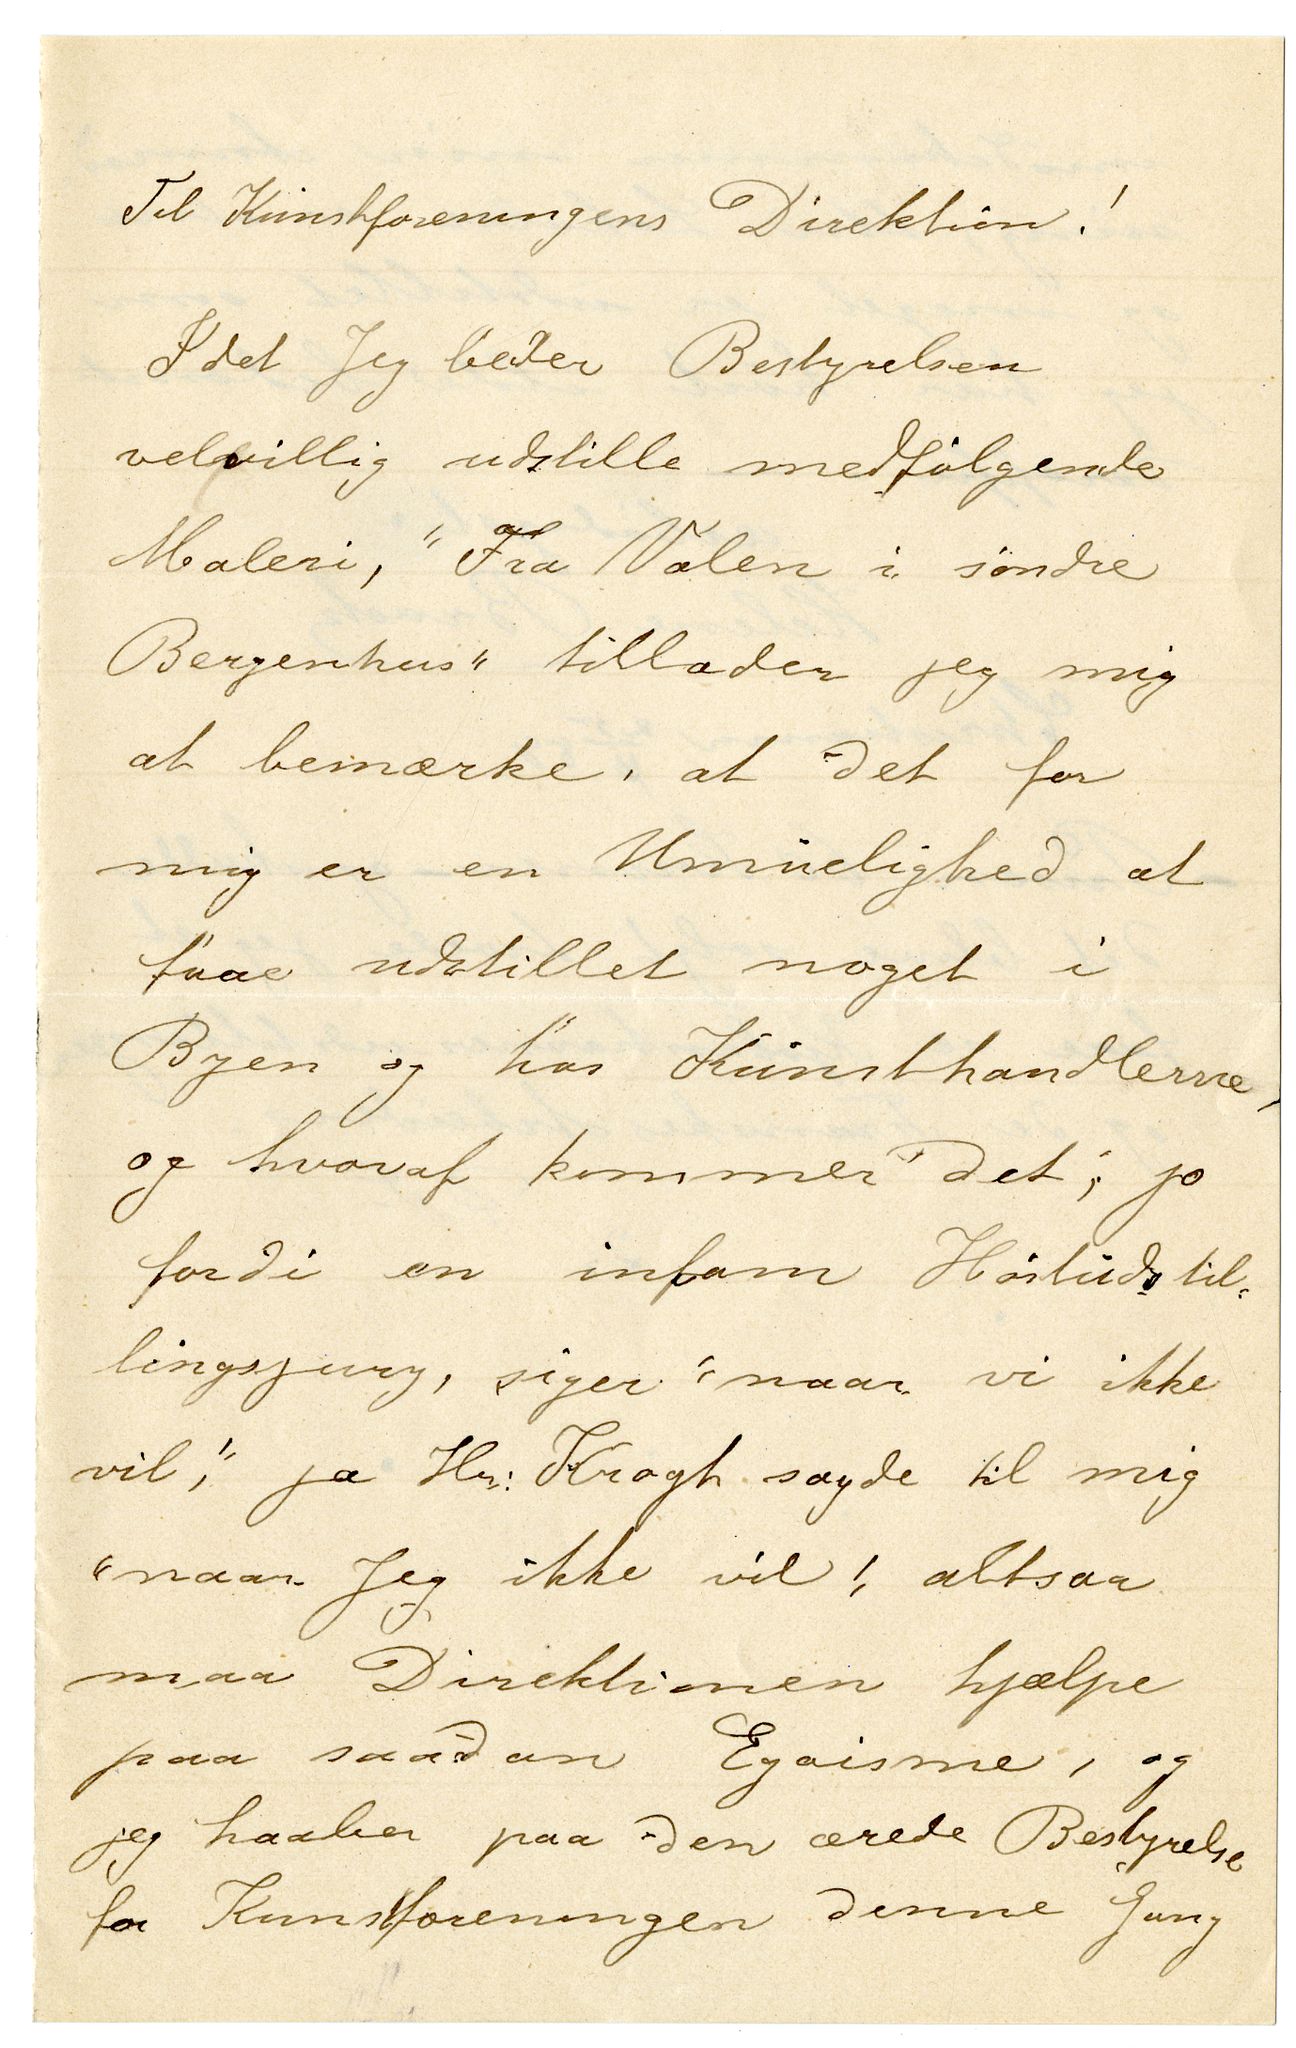 Til Kunstforeningens Direktion!
Idet Jeg beder Bestyrelsen
velvillig udstille medfølgende
Maleri, "Fra Valen i søndre
Bergenhus" tillader jeg mig
at bemærke, at det for
mig er en Umuelighed at
faae udstillet noget i
Byen og hos Kunsthandlerne,
og hvoraf kommer det; jo
fordi en infam Høstudstil-
lingsjury, siger "naar vi ikke
vil!," ja Hr: Krogh sagde til mig
"naar Jeg ikke vil!, altsaa
maa Direktionen hjælpe
paa saadan Egoisme, og
jeg haaber paa den ærede Bestyrelse
for Kunstforeningen denne Gang